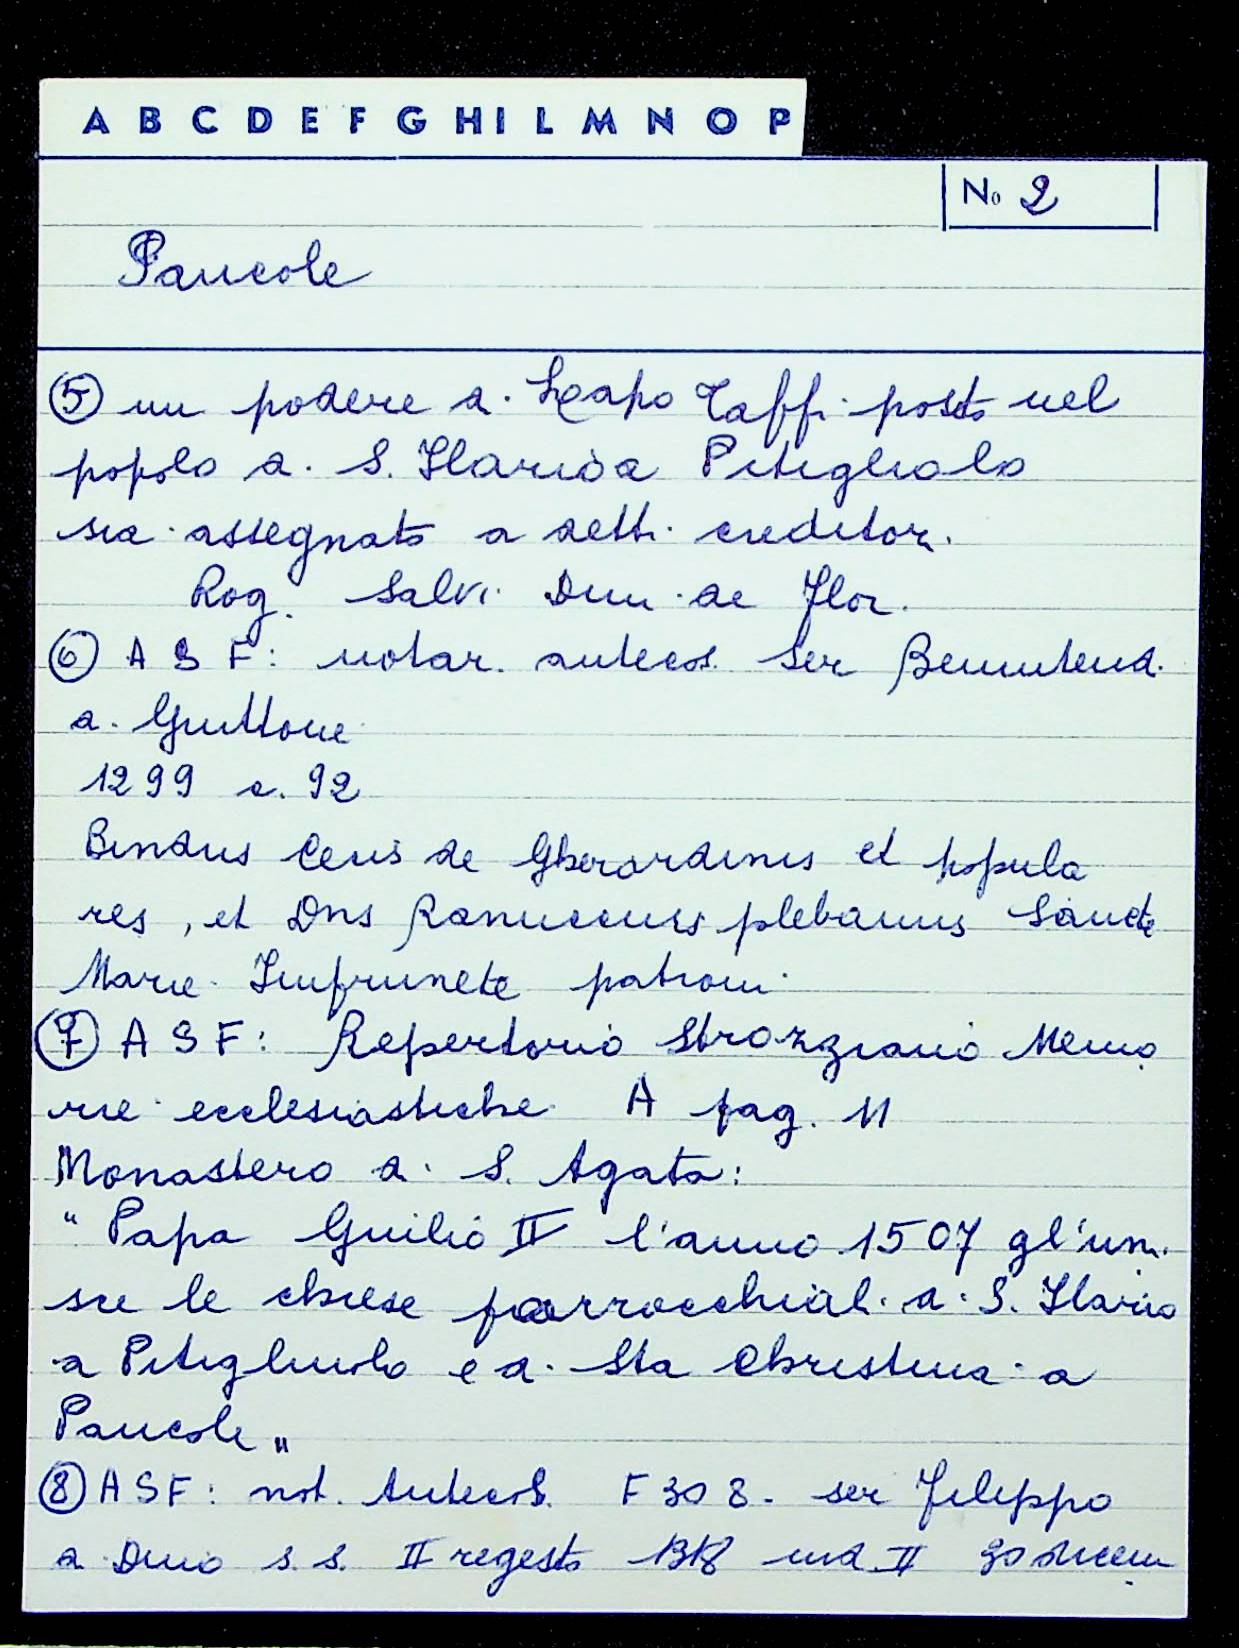 A B C D E F G H I L M N O P
No 2
Pancole
⑤ un podere di Lapo Taffi posto nel
popolo di S. Ilario a Pitigliolo
sia assegnato a detti creditori.
Rog. Salvi Dini de Flor.
⑥ A S F: notar. antecos. Ser
di Guittone
1299 c. 92
Bindus Cenis de Gherardinis et popula
res, et Dns Ranuccius plebanus Sancte
Marie Imprunete patroni
⑦ A S F: Repertorio Strozziano Memo
rie ecclesiastiche A pag. 11
Monastero di S. Agata:
"Papa Giulio II l'anno 1507 gl'uni
sce le chiese parrocchiali di S. Ilario
a Pitigliuolo e di Sta Christina a
Pancole"
⑧ A S F: not. Antecos. F 308. ser Filippo
di Dino s. s. II regesto 1318 ind II 30 dicem